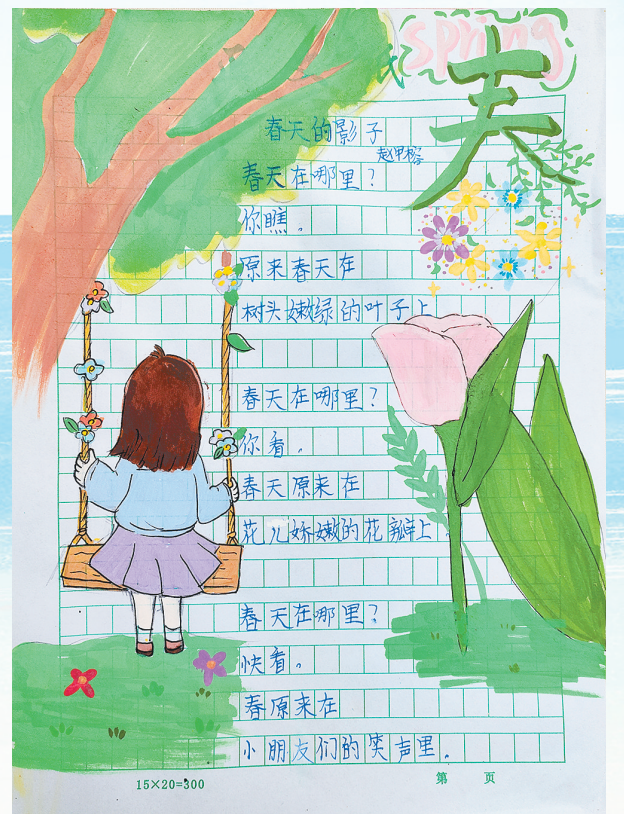 spring
春
春天的影子
赵甲榕
春天在哪里？
你瞧。
原来春天在
树头嫩绿的叶子上
春天在哪里？
你看。
春天原来在
花儿娇嫩的花瓣上
春天在哪里？
快看。
春原来在
小朋友们的笑声里。
15×20=300
第 页